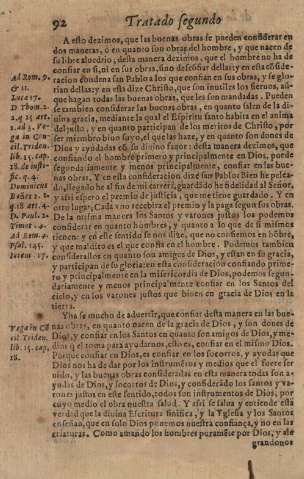 92 Tratado segundo
A esto dezimos, que las buenas obras se pueden considerar en
dos maneras, ó en quanto son obras del hombre, y que nacen de
su libre aluedrio, desta manera dezimos, que el hombre no ha de
confiar en si, ni en sus obras, sino desconfiar dellas: y en esta conside-
racion condena san Pablo a los que confian en sus obras, y se glo-
rian dellas: y en esta dize Christo, que son inutiles los sieruos, aũ-
que hagan todas las buenas obras, que les son mandadas. Pueden
se tambien considerar las buenas obras, en quanto salen de la di-
uina gracia, mediante la qual el Espiritu santo habita en el anima
del justo, y en quanto participan de los meritos de Christo, por
ser miembro biuo suyo, el que las haze, y en quanto son dones de
Dios y ayudadas cõ su diuino fauor: desta manera dezimos, que
confiando el hombre primero y principalmente en Dios, puede
segundariamente y menos principalmente, confiar en las bue-
nas obras. Y en esta consideracion dize san Pablo: Bien he pelea-
do, llegado he al fin de mi carrera, guardado he fidelidad al Señor,
y assi espero el premio de justicia, que me tiene guardado. Y en
otro lugar, Cada vno recebira el premio y la paga segun sus obras.
De la misma manera los Santos y varones justos los podemos
considerar en quanto hombres, y quanto a lo que de si mismos
tienen: y en este sentido se nos dize, que no confiemos en hõbre,
y que maldito es el que confia en el hombre. Podemos tambien
considerallos en quanto son amigos de Dios, y estan en su gracia,
y participan de su gloria: en esta consideracion confiando prime-
ro y principalmente en la misericordia de Dios, podemos segun-
dariamente y menos principalmente confiar en los Santos del
cielo, y en los varones justos que biuen en gracia de Dios en la
tierra.
Y ha se mucho de aduertir, que confiar desta manera en las bue-
nas obras, en quanto nacen de la gracia de Dios, y son dones de
Dios, y confiar en los Santos en quanto son amigos de Dios, y me-
dios q̃ el toma para ayudarnos, esto es, confiar en el mismo Dios.
Porque confiar en Dios, es confiar en los socorros, y ayudas que
Dios nos ha de dar por los instrumẽtos y medios que el fuere ser
uido, y las buenas obras consideradas en esta manera todas son a-
yudas de Dios, y socorros de Dios, y considerádo los santos y va-
rones justos en este sentido, todos son instrumentos de Dios, por
cuyo medio el obra nuestra salud. Y assi se salua y entiende esta
verdad que la diuina Escritura sinifica, y la Yglesia y los Santos
enseñan, que en solo Dios ponemos nuestra confiança, y no en las
criaturas. Como amando los hombres puramẽte por Dios, y alé
grandonos
Ad Rom. 9.
& 11.
Luce 17.
D Thom. 2.
Dominicus
D. Paul. 2.
Timot. 4.
Psal. 145.
Ierem. 17.
Vega in Cõ
cil. Triden.
lib. 15. cap.